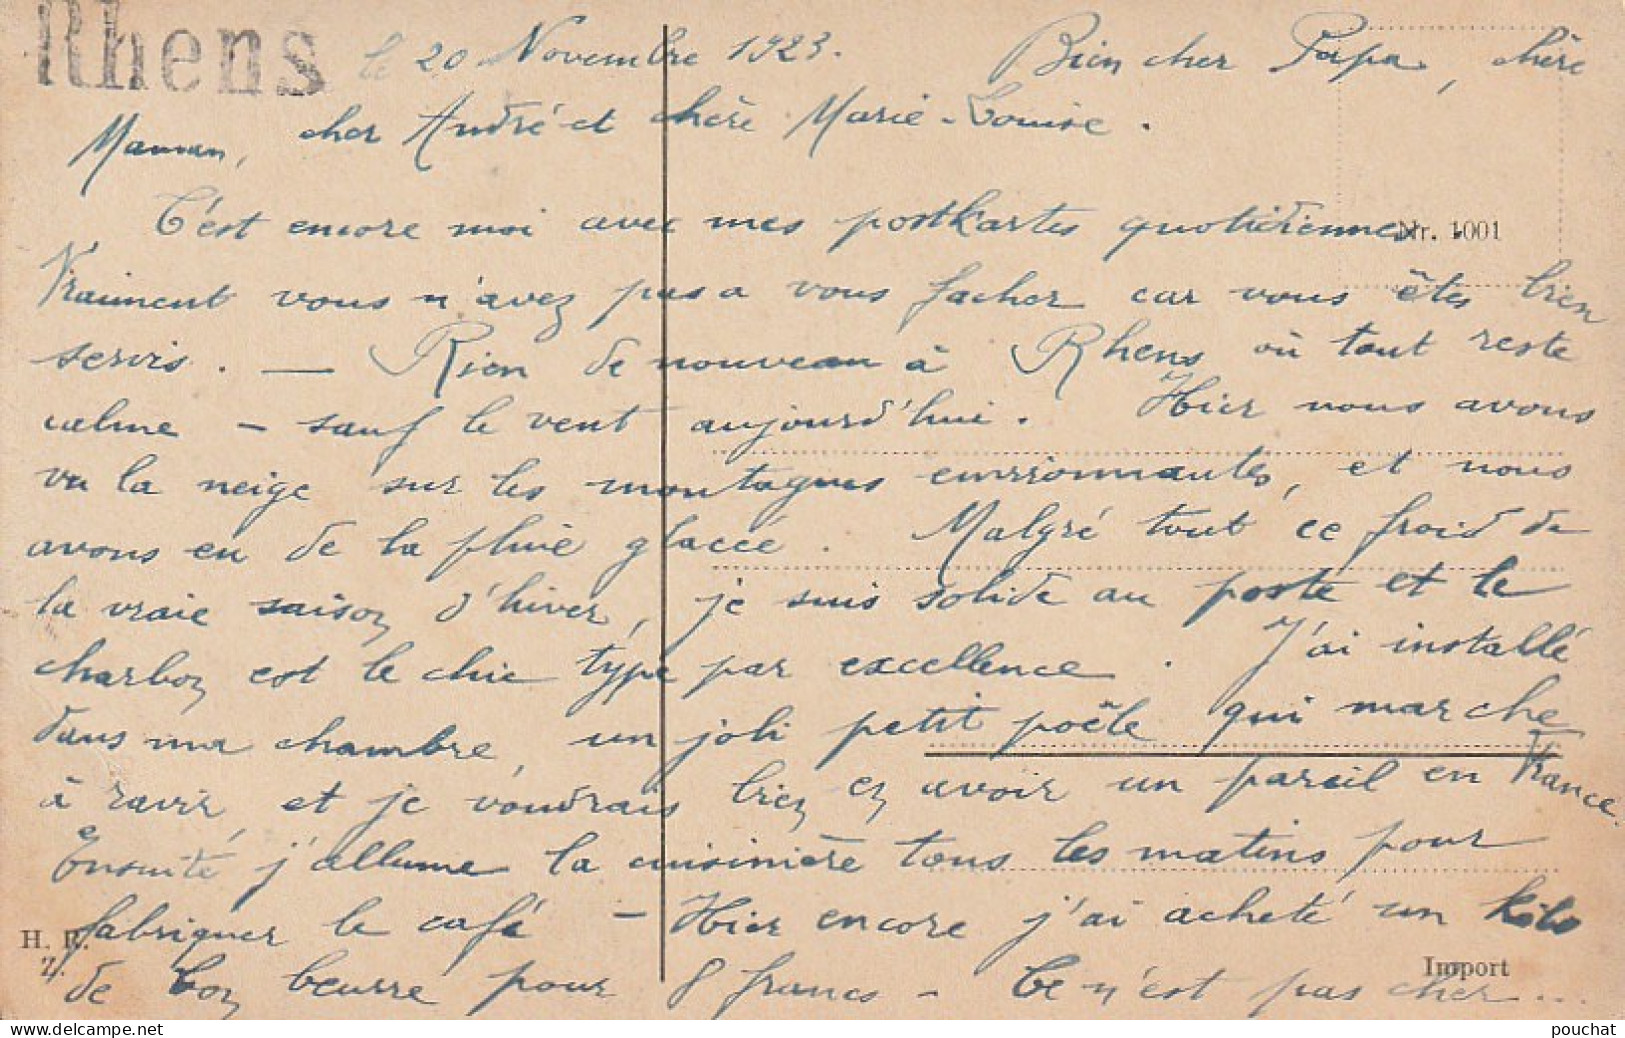 Rhens le 20 Novembre 1923. Bien cher Papa, chère
Maman, cher André et chère Marie-Louise.
C'est encore moi avec mes postkartes quotidiennes.
Nr. 1001
Vraiment vous n'avez pas a vous facher car vous êtes bien
servis. — Rien de nouveau à Rhens où tout reste
calme - sauf le vent aujourd'hui. Hier nous avons
vu la neige sur les montagnes environnantes, et nous
avons eu de la pluie glacée. Malgré tout ce froid de
la vraie saison d'hiver, je suis solide au poste et le
charbon est le chic type par excellence. J'ai installé
dans ma chambre, un joli petit poêle qui marche
à ravir, et je voudrais bien en avoir un pareil en France.
Ensuite j'allume la cuisinière tous les matins pour
fabriquer le café - Hier encore j'ai acheté un kilo
H. R.
Z.
de bon beurre pour 8 francs - Ce n'est pas cher...
Import
pouchat